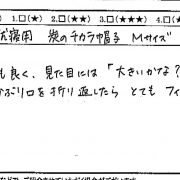 1.□(★) 2.□(★★) 3.□(★★★) 4.□(★
就寝用 炭のチカラ帽子 Mサイズ
も良く、見た目には「大きいかな?
かぶり口を折り返したら とても フィ